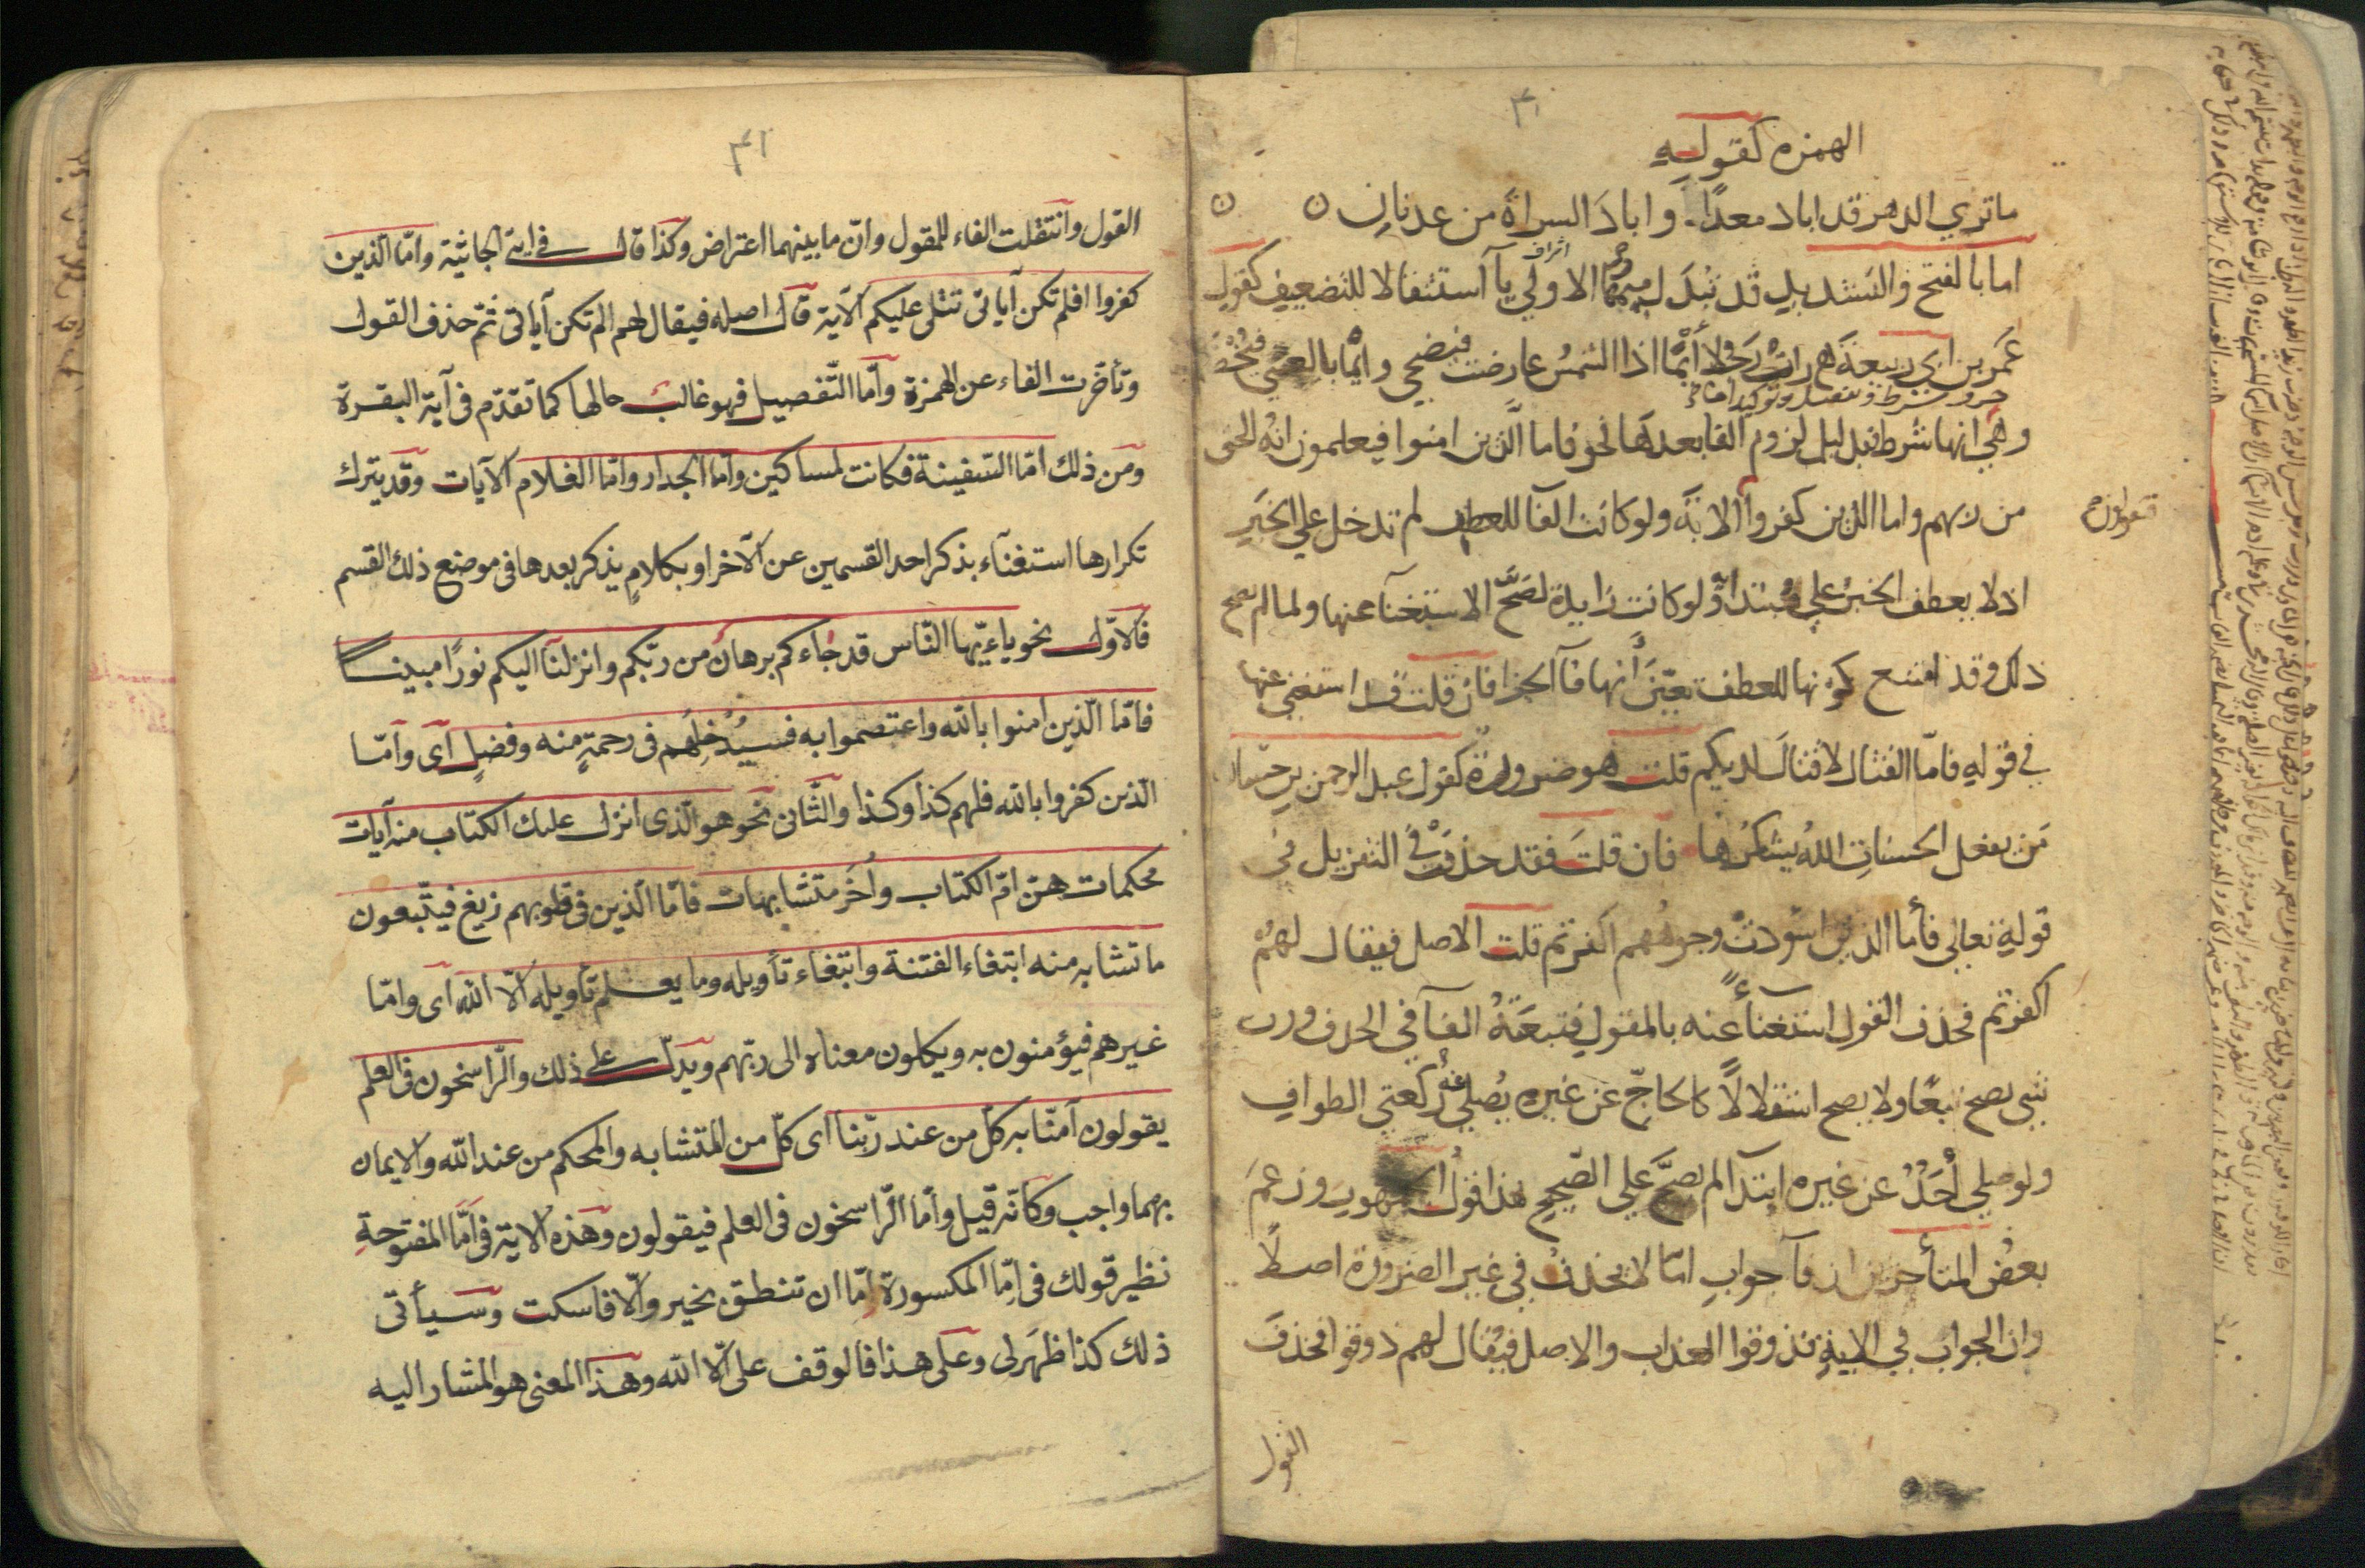 الهمزه كقوله
ما تري الدهر قد اباد معدًا. وابادَ السراة من عدنانِ
اما بالفتح والتشديدِ قد تبْدَل ميمها الاولي يآ آستثقالا للتضعيف كقول
عمَر بن ابي ربيعة رات رجلا أيْما اذا الشمسُ عارضت فيضحي وايْما بالعشي فيُخْصَر
حرف شرط وتفصيل وتوكيد اما
وهي انها شرط فبدليل لزوم الفا بعدها نحو فاما الَّذين امنوا فيعلمون انهُ الحق
من ربهم واما الذين كفروا الاية ولو كانت الفآ للعطف لم تدخل علي الخبَر
فيقولون
اذ لا يعطف الخبرُ علي مبتداه ولو كانت زايدة لصَحَّ الاستغنآ عنها ولما لم يصح
ذلك وقد امتنع كونها للعطف تعيّنَ أنها فآ الجزا فان قلت قد استغني عنها
في قوله فامّا القتال لا قتالَ لديكم قلت هو ضرورة كقول عبد الرحمن بن حسّان
مَن يفعل الحسناتِ اللهُ يشكرُها فان قلتَ فقد حذفَتْ في التنزيل في
قولهِ تعالي فأما الذين اسْودتْ وجوهُهم اكفرتم قلت الاصل فيقال لهمُ
اكفرتم فحذف القول استغنآءً عنه بالمقول فتبعَتهُ الفآ في الحذف ورب
شي يصح تبعًا ولا يصح استقلالاً كالحاجّ عن غيره يُصلي عنه ركعتي الطوافِ
ولو صلي أحَدٌ عن غيره ابتدآ لم يصحَّ علي الصّحيح هذا قولُ الجمهورِ وزعمَ
بعضُ المتأخرين ان فآ جوابِ امّا لا يحذفُ في غير الضرورة اصلاً
وان الجوابَ في الايةِ فذوقوا العذاب والاصل فيُقال لهم ذوقوا فحذفَ
القول
القول وانتقلت الفاء للمقول وانّ ما بينهما اعتراض وكذا قال في اية الجاثية وامّا الّذين
كفروا افلم تكن آياتى تتلى عليكم الآية قال اصله فيقال لهم الم تكن آياتى ثمّ حذف القول
وتأخّرت الفاء عن الهمزة وامّا التّفصيل فهو غالب حالها كما تقدّم فى آية البقرة
ومن ذلك امّا السّفينة فكانت لمساكين وامّا الجدار وامّا الغلام الآيات وقد يترك
تكرارها استغنآء بذكر احد القسمين عن الآخر او بكلامٍ يذكر بعدها فى موضع ذلك القسم
فالاوّل نحو ياءيّها النّاس قد جاءكم برهان من ربّكم وانزلنآ اليكم نورًا مبينا
فامّا الّذين امنوا بالله واعتصموا به فسيُدخلهم فى رحمةٍ منه وفضلٍ آى وامّا
الّذين كفروا بالله فلهم كذا وكذا والثّانى نحو هو الّذى انزل عليك الكتاب منه آيات
محكمات هنّ امّ الكتاب وأُخَر متشابهات فامّا الّذين فى قلوبهم زيغ فيتّبعون
ما تشابه منه ابتغاء الفتنة وابتغاء تأويله وما يعلم تأويله الّا الله آى وامّا
غيرهم فيؤمنون به ويكلون معناه الى ربّهم ويدلّ على ذلك والرّاسخون فى العلم
يقولون آمنّا به كلّ من عند ربّنا اى كلّ من المتشابه والمحكم من عند الله والايمان
بهما واجب وكانّه قيل وامّا الرّاسخون فى العلم فيقولون وهذه الاية فى امّا المفتوحةِ
نظير قولك فى امّا المكسورة امّا ان تنطق بخير والّا فاسكت وسيأتى
ذلك كذا ظهَر لى وعلى هذا فالوقف على الّا الله وهذا المعنى هو المشار اليه